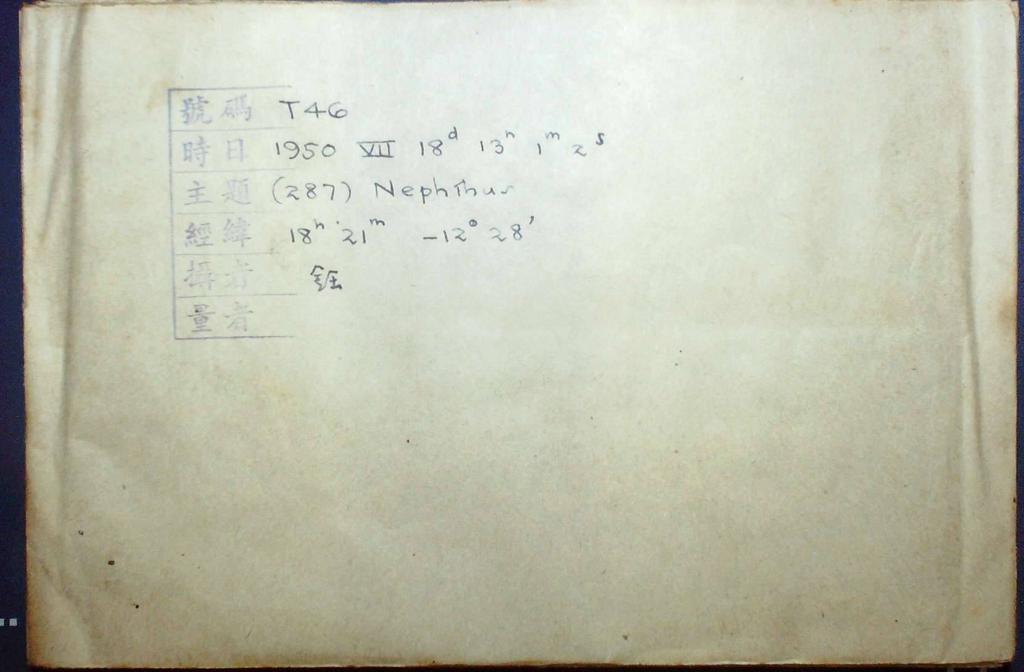 號碼 T46
時日 1950 VII 18ᵈ 13ʰ 1ᵐ 2ˢ
主題 (287) Nephthus
經緯 18ʰ 21ᵐ −12° 28′
攝者 鈺
量者